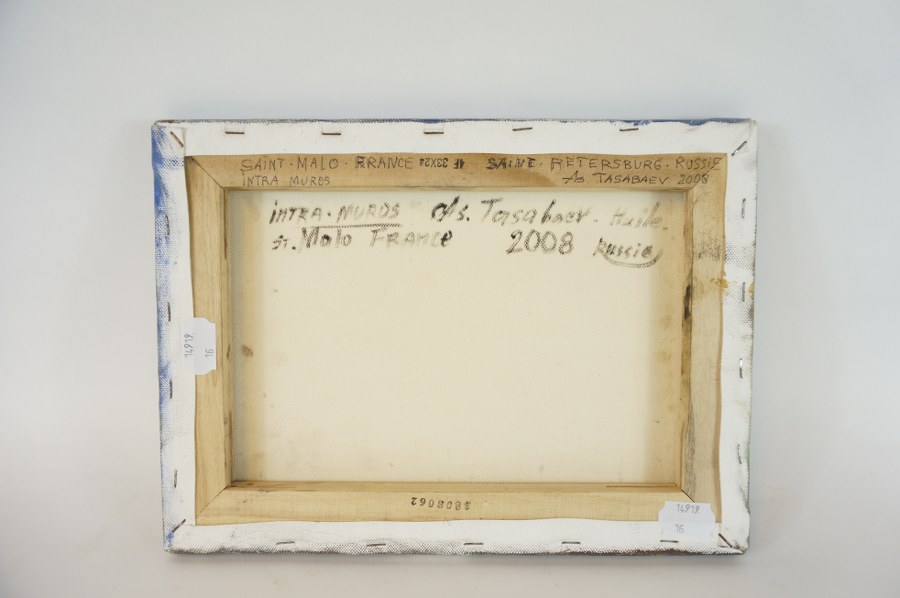 SAINT·MALO·FRANCE 4F 33X24 SAINT·PETERSBURG·RUSSIE
INTRA·MUROS As TASABAEV 2008
INTRA·MUROS As. Tasabaev. Huile.
ST. Malo FRANCE 2008 Russie
14919
16
3808062
14919
16